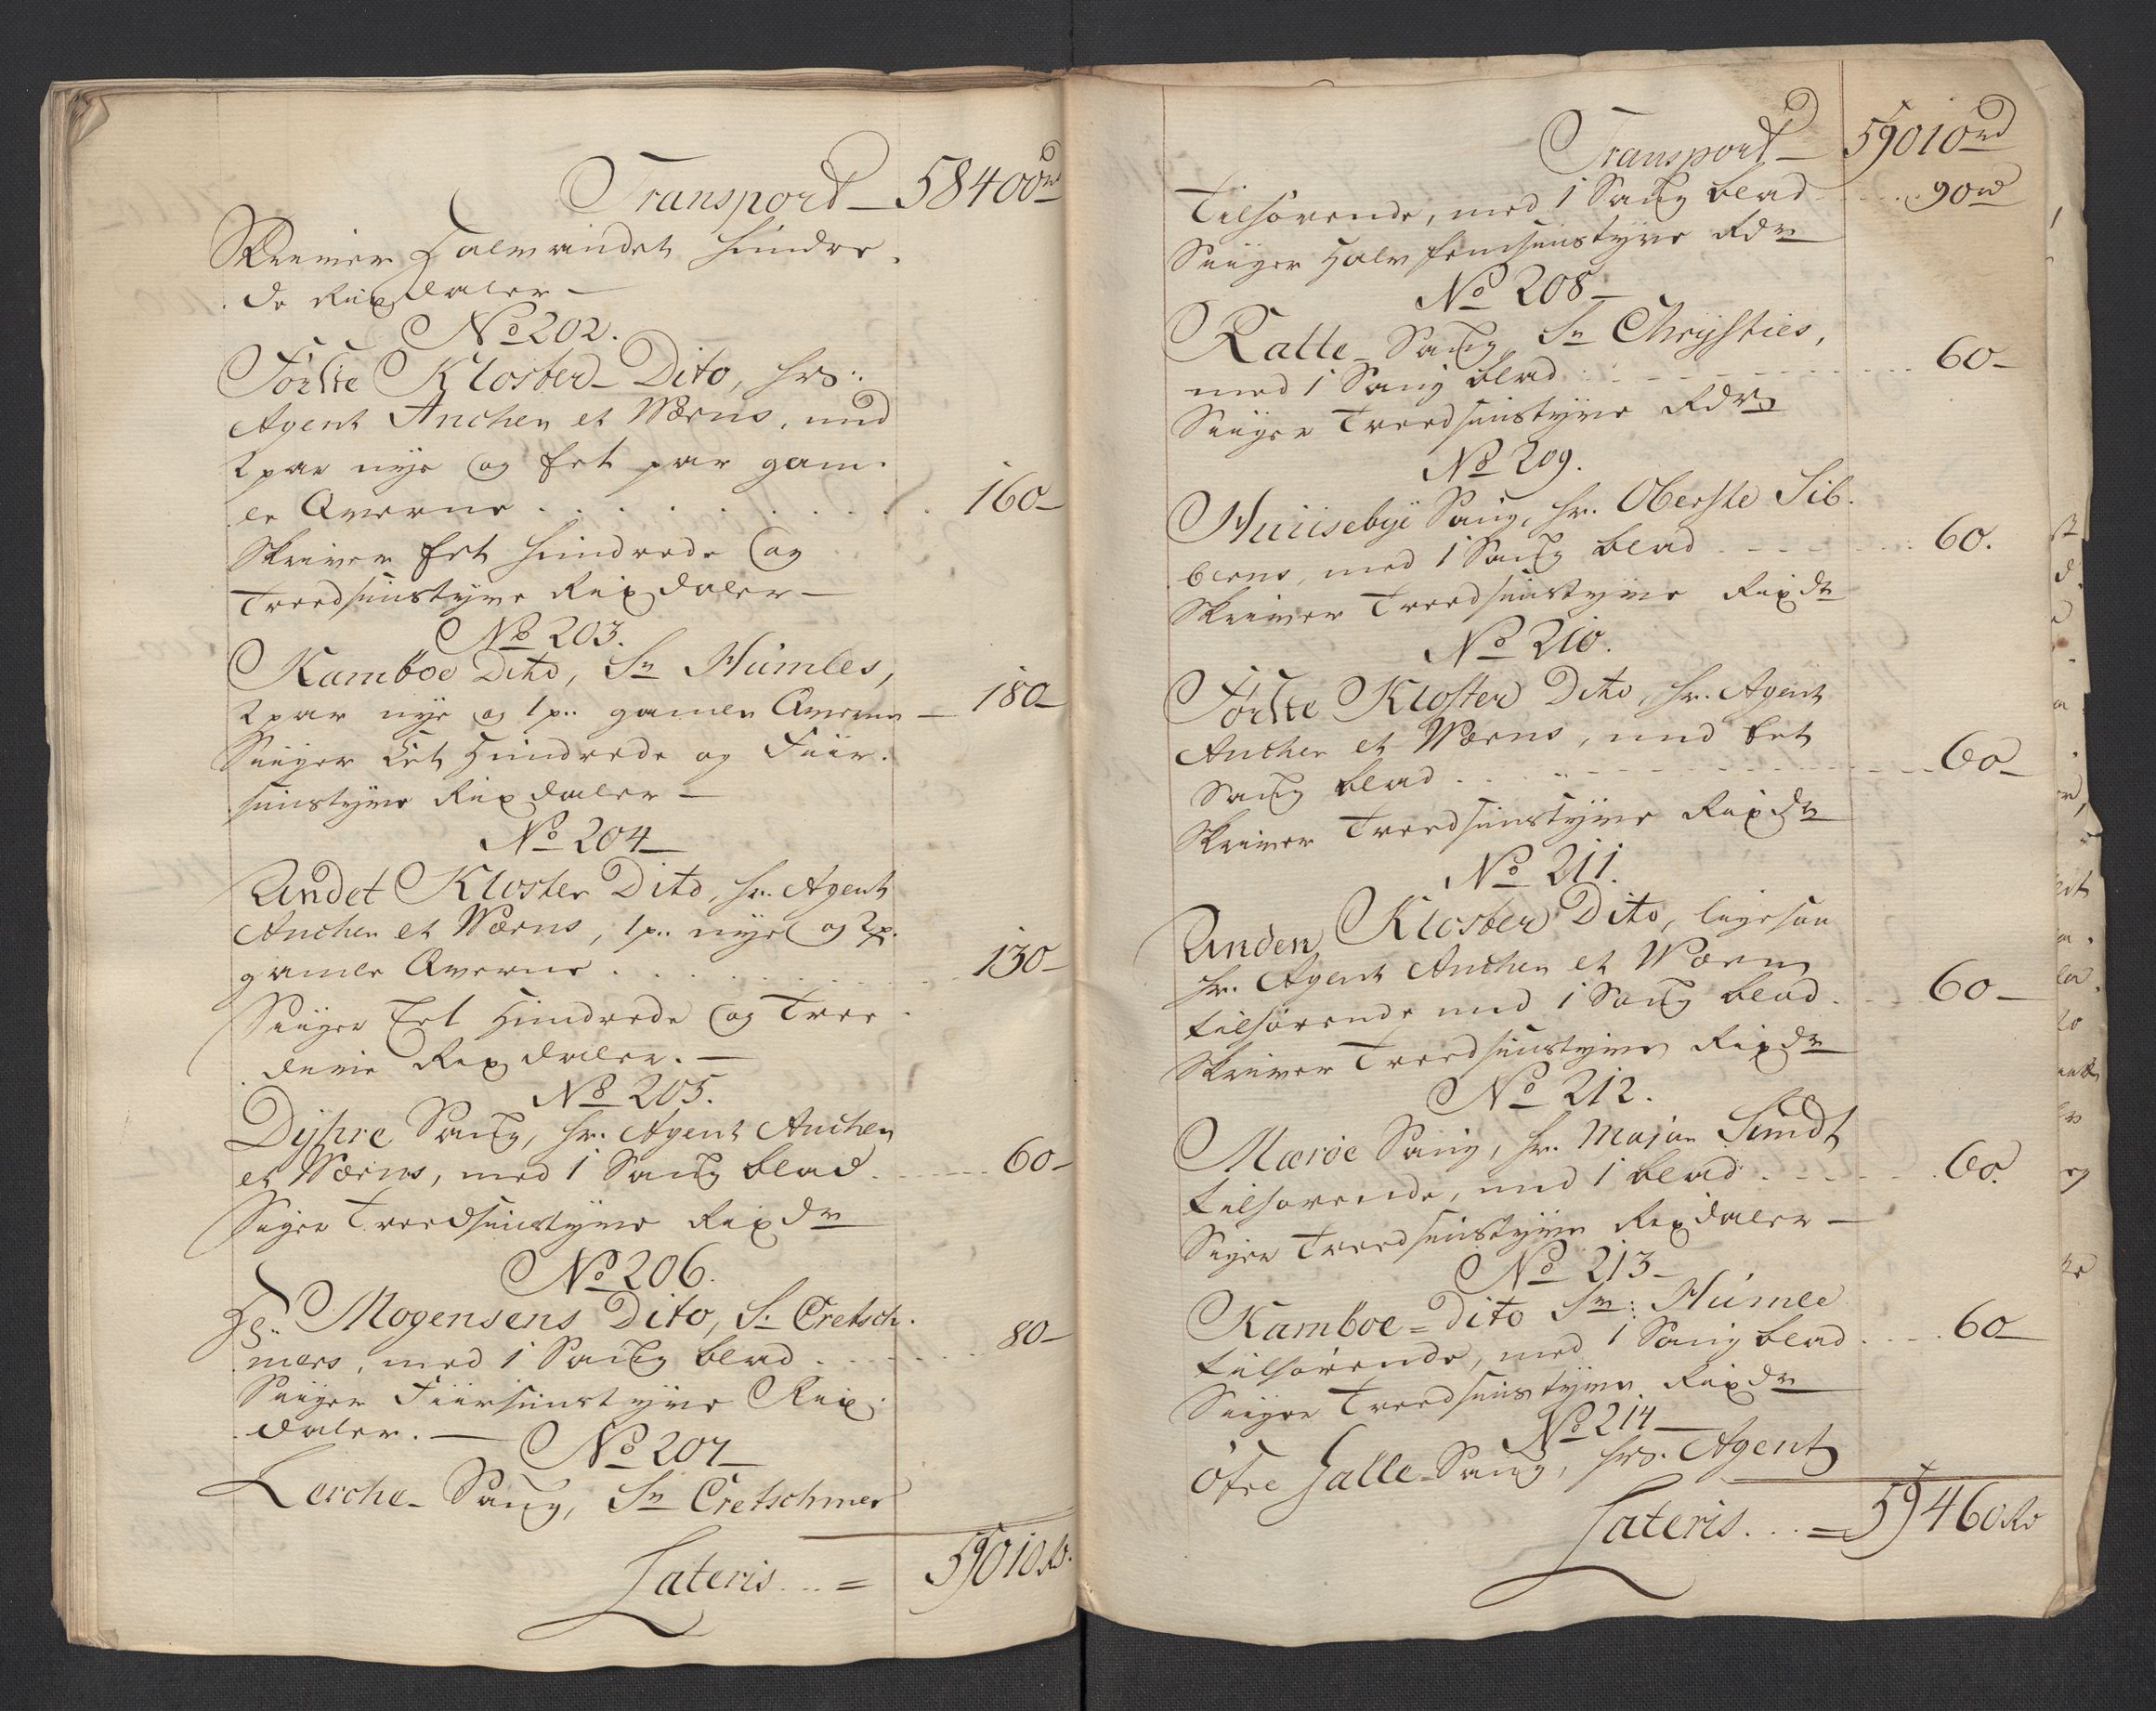 Transport – 58400rd
Skriver Halvandet Hundre-
de Rixdaler –
No 202.
Første Kloster Dito, Hrs:
Agent Anchen et Wærns, med
2 par nye og Eet par gam-
le Qverne . . . . . . . . . 160 –
Skriver Eet Hundrede og
Treedsinstyve Rixdaler –
No 203.
Kamboe Dito, Sr Humles,
2 par nye og 1 p: gamle Qverne – 180 –
Siiger Eet Hundrede og Fiir-
sinstyve Rixdaler –
No 204 –
Andet Kloster Dito, Hr. Agent
Anchen et Wærns, 1 p: nye og 2 p.
gamle Qverne . . . . . . . . 130 –
Siiger Eet Hundrede og Tre-
deve Rixdaler. –
No 205.
Dypre Saug, Hr. Agent Anchen
et Wærns, med 1 Saug blad . . . . 60 –
Siger Treedsinstyve Rixdr
No 206.
Hs: Mogensens Dito, Sr Cretsch-
mers, med 1 Saug blad . . . . . 80 –
Siiger Fiirsinstyve Rix-
daler. –
No 207 –
Lerche-Saug, Sr Cretschmer
Lateris . . . = 59010 Rd.
Transport – 59010rd
Tilhørende, med 1 Saug blad . . . . 90rd
Siiger Halvfemsinstyve Rdr
No 208 –
Ratte-Saug Sr Chrysties,
med 1 Saug blad . . . . . . . . 60 –
Siiger Treedsinstyve Rdr
No 209.
Huusebye Saug, Hr. Oberste Sib-
berns, med 1 Saug blad . . . . . 60.
Skriver Treedsinstyve Rixdr
No 210.
Første Kloster Dito, Hr. Agent
Anchen et Wærns, med Eet
Saug blad . . . . . . . . . . . 60 –
Skriver Treedsinstyve Rixdr
No 211.
Anden Kloster Dito, ligesaa
Hr. Agent Anchen et Wærn
tilhørende med 1 Saug blad . . . 60 –
Skriver Treedsinstyve Rixdr
No 212.
Mæroe Saug, Hr. Major Sundt
tilhørende, med 1 blad . . . . . 60.
Siger Treedsinstyve Rixdaler –
No 213 –
Kamboe = Dito Sr: Humle
tilhørende, med 1 Saug blad . . . 60 –
Siiger Treedsinstyve Rixdr
No 214 –
Øfre Halle-Saug, Hrs. Agent
Lateris . . . = 59460 Rd